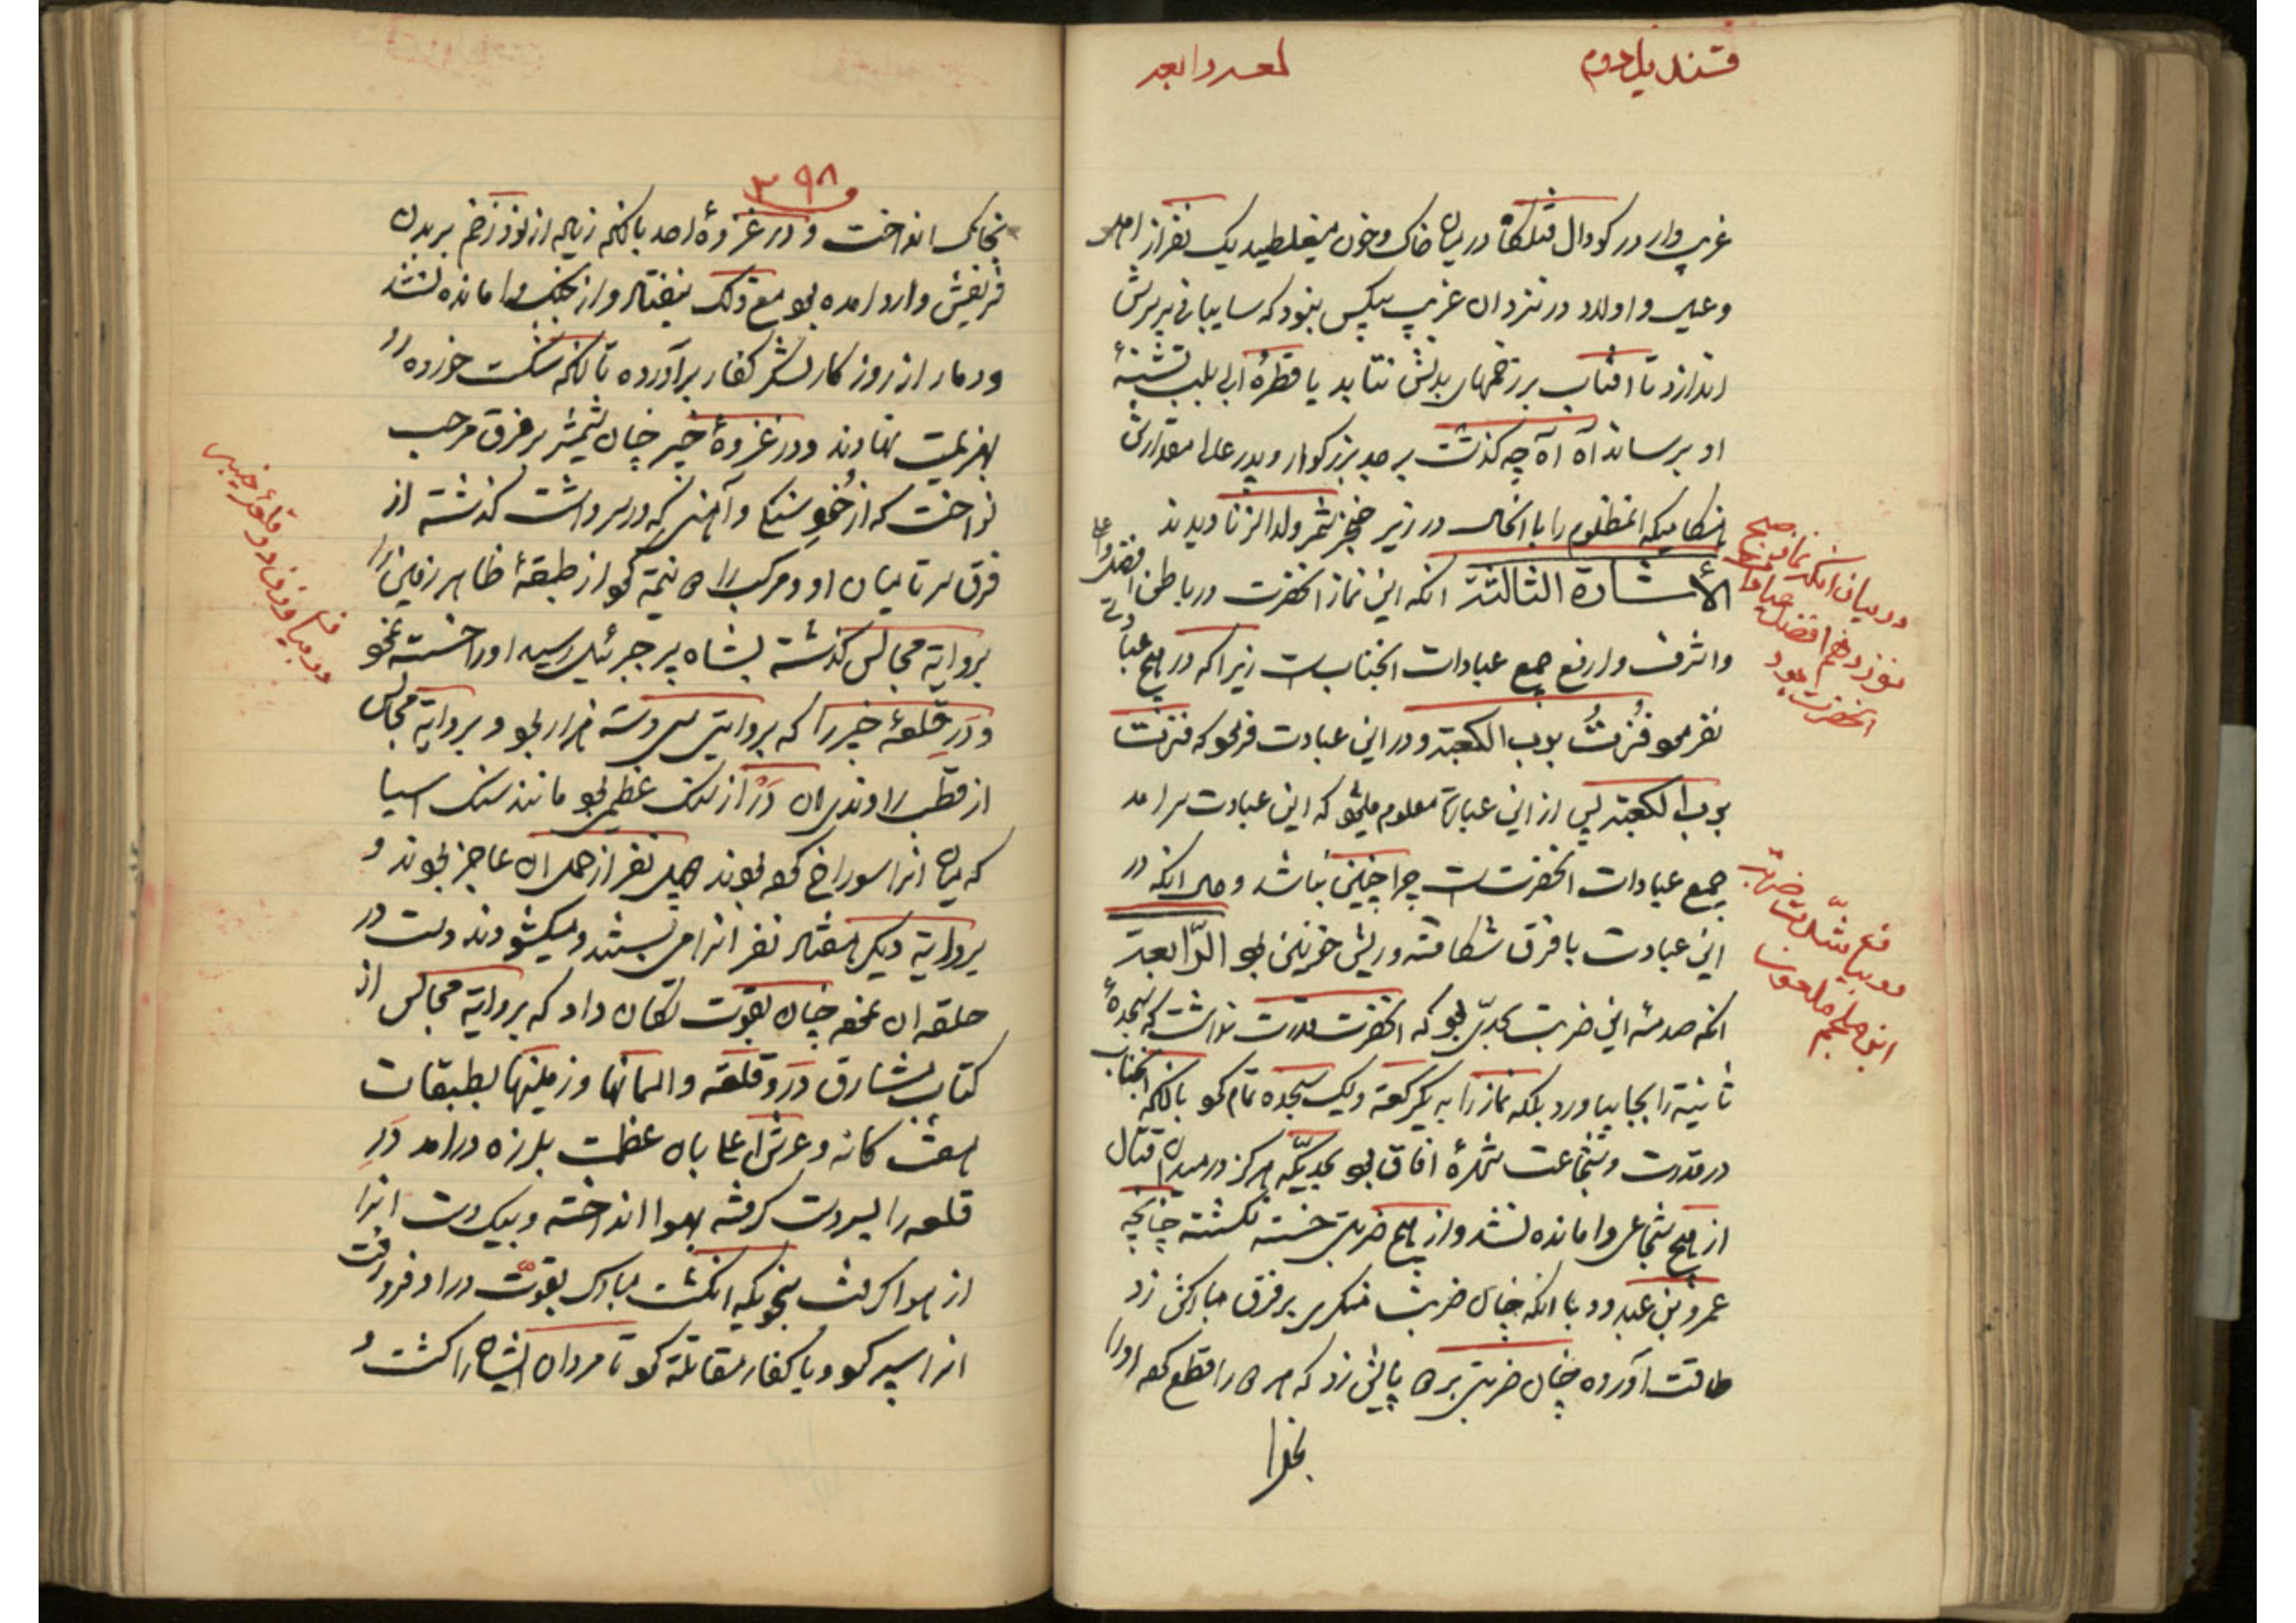 قندیل دوم
غریب وار در کودال قتلکاه در میان خاک و خون میغلطید یک نفر از اهل
و عیال و اولاد در نزد ان غریب بیکس بنود که سایبانی بر سرش
اندازد تا افتاب بر زخمهای بدنش نتابد یا قطرهٔ ابی بلب تشنهٔ
او برساند اه آه چه کذشت بر جد بزرکوار و پدر عالیمقدارش
هنکامیکه انمظلوم را با انحال در زیر خنجر شمر ولد الزنا دیدند
الأشارة الثالثة انکه این نماز انحضرت در باطن افضل و اعلی
و اشرف و ارفع جمیع عبادات انجناب است زیرا که در هیچ عبادتی
نفرمود فُزْتُ برب الکعبة و در این عبادت فرمود که فزت
برب الکعبة پس از این عبارة معلوم میشود که این عبادت سرامد
جمیع عبادات انحضرت است چرا چنین نباشد و حال انکه در
این عبادت با فرق شکافته و ریش خونین بود الرّابعة
انکه صدمهٔ این ضربت بحدّی بود که انحضرت قدرت نداشت که سجدهٔ
ثانیة را بجا بیاورد بلکه نماز را به یکرکعة و یک سجده تمام کرد با انکه انجناب
در قدرت و شجاعت شهرهٔ افاق بود بحدیکّه هرکز در میدان قتال
از هیچ شجاعی وامانده نشد و از هیچ ضربتی خسته نکشته چنانچه
عمرو بن عبدود با انکه چنان ضربت منکری بر فرق مبارکش زد
طاقت آورده چنان ضربتی بر پایش زد که هر دو را قطع کرده او را
بخاک
در بیان انکه نماز صبح
نوزدهم افضل عبادات
انحضرت بود
در بیان شدّت ضربت
ابن ملجم ملعون
۳۹۸
بخاک انداخت و در غزوهٔ احد با انکه زیاده از نود زخم بر بدن
شریفش وارد امده بود مع ذلک نیفتاد و از جنک وامانده نشد
و دمار از روزکار لشکر کفار برآورده تا انکه شکست خورده رو
بهزیمت نهادند و در غزوهٔ خیبر چنان شمشیر بر فرق مرحب
نواخت که از خُود سنکی و آهنی که در سر داشت کذشته از
فرق سر تا میان او و مرکب را دو نیمه کرد از طبقهٔ ظاهر زمین را
بروایة مجالس کذشته بشاه پر جبرئیل رسید او را خسته نمود
و دَرِ قلعهٔ خیبر را که بروایتی سی و سه هزار بود و بروایة مجالس
از قطب راوندی ان دَرْ از سنک عظیمی بود مانند سنک اسیا
که میان انرا سوراخ کرده بودند چهل نفر از حمل ان عاجز بودند و
بروایة دیکر هفتاد نفر انرا می بستند و میکشودند دست در
حلقه ان نموده چنان بقوت تکان داد که بروایة مجالس از
کتاب مشارق دَرِ و قلعه و اسمانها و زمینها بطبقات
هفت کانه و عرش اعلا بان عظمت بلرزه درامد دَرِ
قلعه را بیک دست کرفته بهوا انداخته و بیکدست انرا
از هوا کرفت بنحویکه انکشت مبارک بقوّت در او فرو رفت
انرا سپر کرد و با کفار مقاتلة کرد تا مردان ایشان را کشت و